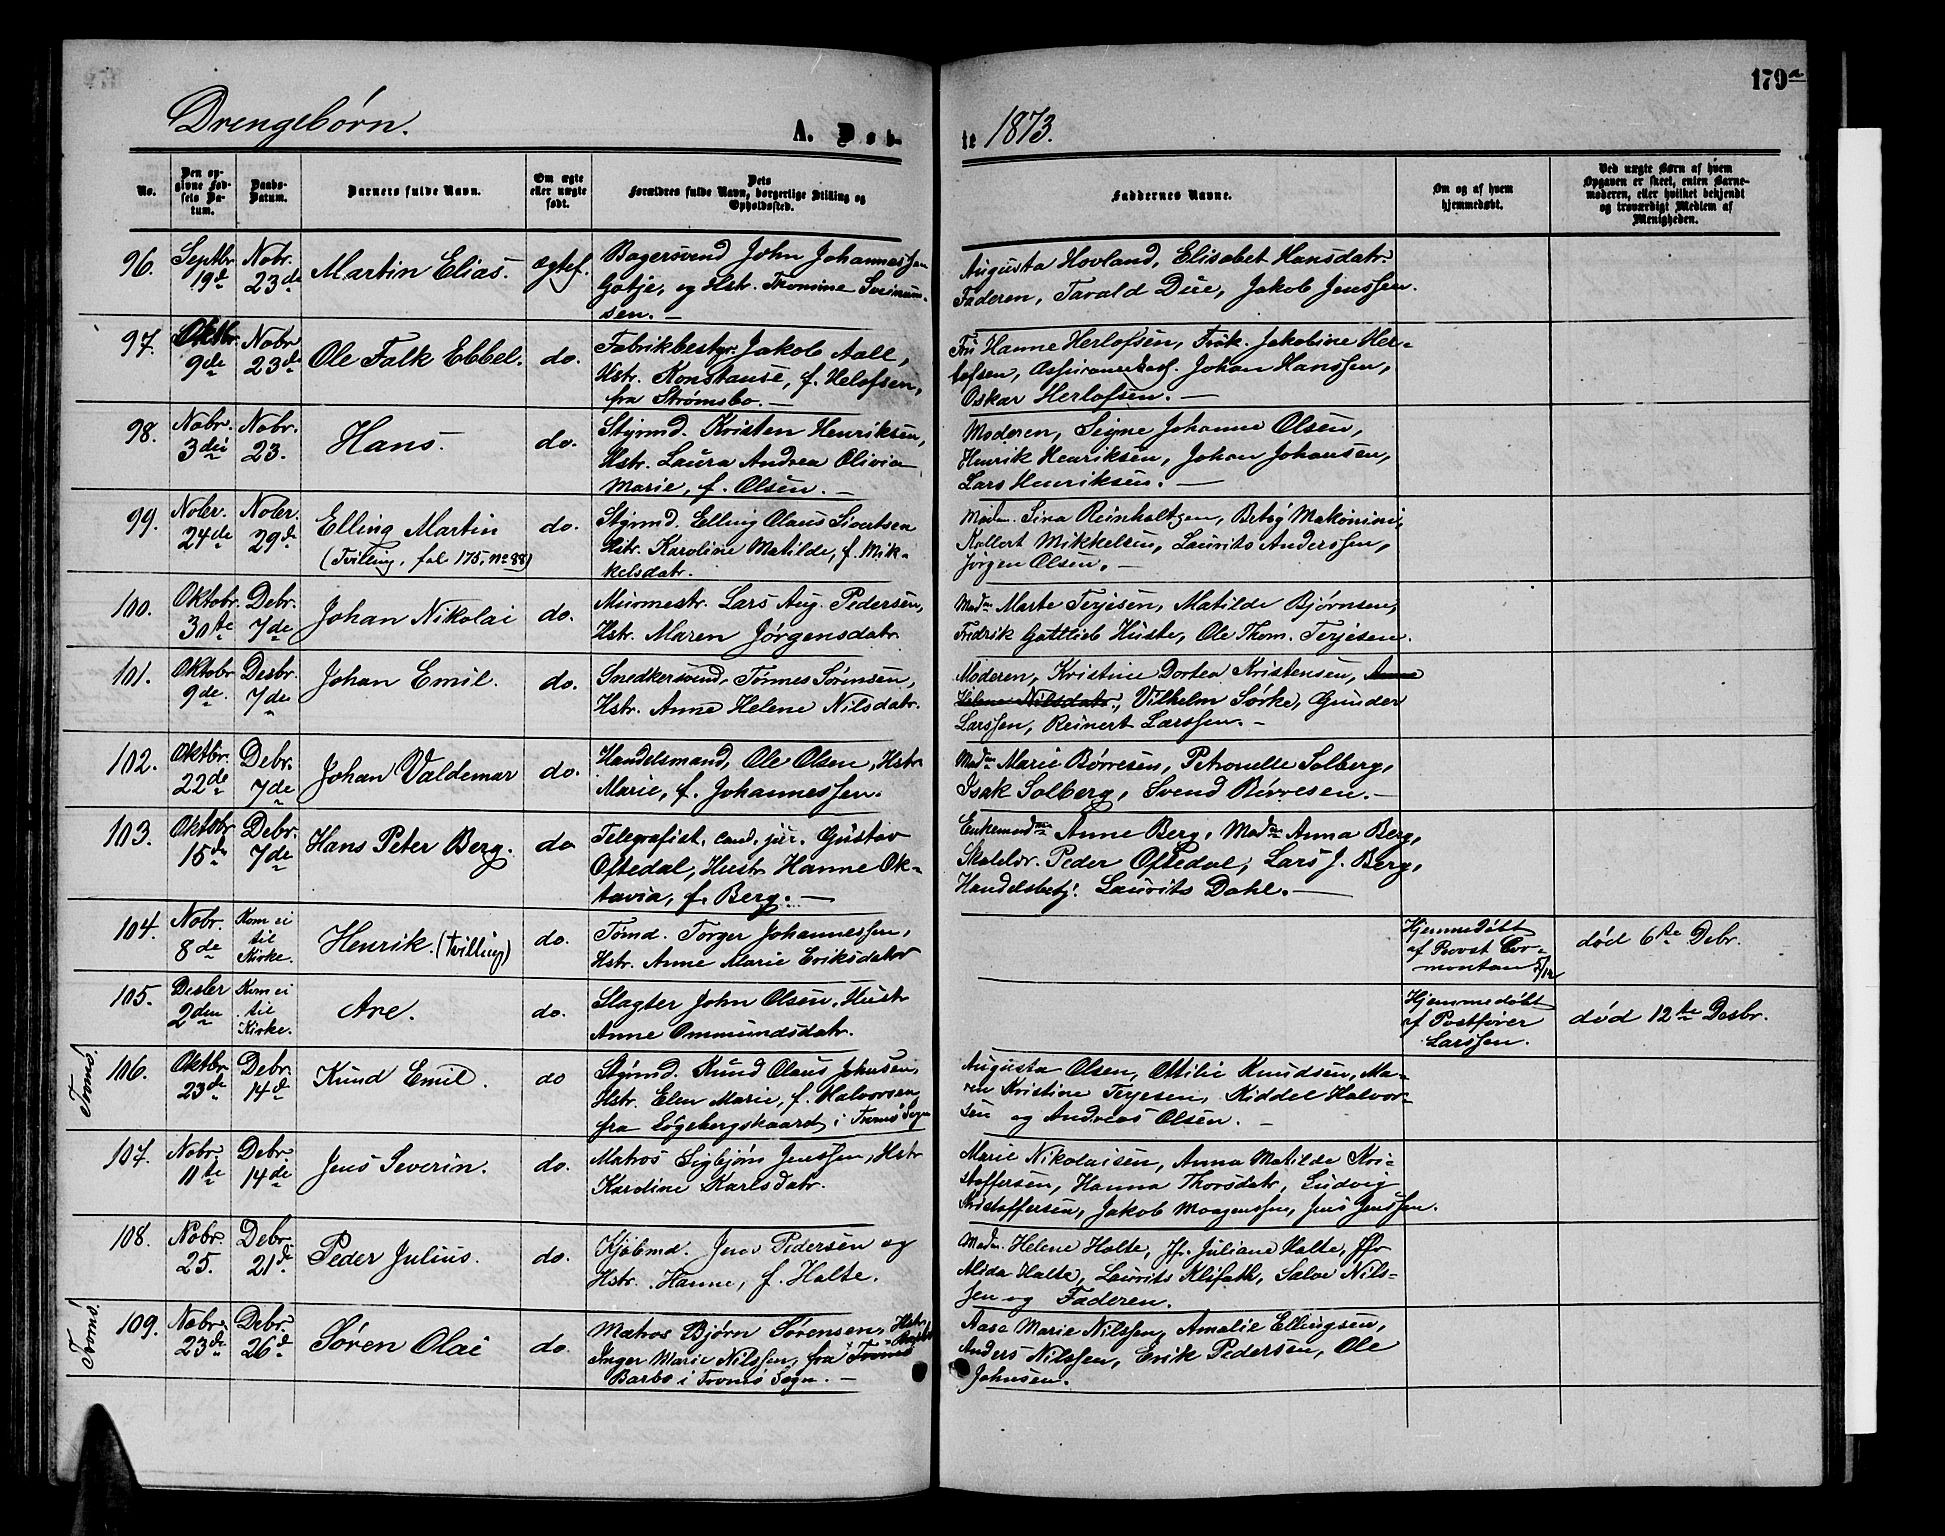 179a
Drengebørn.
A. Døb-
te 1873.
No.
Den opgivne Fødsels Datum.
Daabs-Datum.
Barnets fulde Navn.
Om ægte eller uægte født.
Dets Forældres fulde Navn, borgerlige Stilling og Opholdssted.
Faddernes Navne.
Om og af hvem hjemmedøbt.
Ved uægte Børn af hvem Opgaven er skeet, enten Barnemoderen, eller hvilket bekjendt og troværdigt Medlem af Menigheden.
96. Septbr. 19de Nobr. 23de Martin Elias. ægtef. Bagersvend John Johannessen
Gotje, og Hstr. Tromine Sveinun-
sen. –
Augusta Hovland, Elisabet Hansdatr.
Faderen, Tarald Due, Jakob Jenssen.
97. Oktbr. 9de Nobr. 23de Ole Falk Ebbel. do. Fabrikbestyr. Jakob Aall,
Hstr. Konstanse, f. Helofsen,
fra Strømsbo. –
Fru Hanne Herlofsen, Frøk. Jakobine Her-
lofsen, Johan Hanssen,
Oskar Herlofsen. –
98. Nobr. 3die Nobr. 23. Hans. do. Styrmd. Kristen Henriksen,
Hstr. Laura Andrea Olivia
Marie, f. Olsen. –
Moderen, Signe Johanne Olsen,
Henrik Henriksen, Johan Johansen,
Lars Henriksen. –
99. Nobr. 24de Nobr. 29de Elling Martin do. Styrmd. Elling Olaus Sivertsen
(Tvilling, fol 175, No 88)
Hstr. Karoline Matilde, f. Mik-
kelsdatr.
Madm. Sina Reinholtzen, Betsy Makonini,
Kallert Mikkelsen, Laurits Anderssen,
Jørgen Olsen. –
100. Oktobr. 30te Debr. 7de Johan Nikolai do. Murmestr. Lars Aug. Pedersen,
Hstr. Maren Jørgensdatr.
Madm Marte Terjesen, Matilde Bjørnsen,
Fredrik Gottlieb Huste, Ole Thom. Terjesen.
101. Oktobr 9de. Desbr. 7de Johan Emil. do. Snedkersvend. Tønnes Sørensen,
Hstr. Anne Helene Nilsdatr.
Moderen, Kristine Dortea Kristensen, Anne
Helene Nilsdatr., Vilhelm Sørke, Gunder
Larssen, Reinert Larssen. –
102. Oktbr. 22de Debr. 7de Johan Valdemar do. Handelsmand, Ole Olsen, Hstr.
Marie, f. Johannessen.
Madm Marie Børresen, Petronelle Solberg,
Isak Solberg, Svend Børresen. –
103. Oktobr. 15de Debr. 7de Hans Peter Berg. do Telegrafist, cand. jur. Gustav
Oftedal, Hustr Hanne Ok-
tavia, f. Berg. –
Enkemadm Anne Berg, Madm Anna Berg,
Skolelr. Peder Oftedal, Lars J. Berg,
Handelsbetj. Laurits Dahl. –
104. Nobr. 8de Kom ei til Kirke. Henrik. (Tvilling) do. Tømd. Torger Johannessen,
Hstr. Anne Marie Eriksdatr
Hjemmedøbt
af Provst Cor-
montan 5/12
død 6te Debr.
105. Desbr 2den Kom ei til Kirke. Are. do. Slagter John Olsen, Hustr
Anne Ommundsdatr.
Hjemmedøbt
af Postfører
Larssen.
død 12te Desbr.
Tromø!
106. Oktbr. 23de Debr. 14de Knud Emil. do Styrmd. Knud Olaus Johnsen,
Hstr. Elen Marie, f. Halvorsen
fra Løgebergskaard i Tromø Sogn
Augusta Olsen, Ottilie Knudsen, Ma-
ren Kristine Terjesen, Kiddel Halvor-
sen og Andreas Olsen. –
107. Nobr. 11te Debr. 14de Jens Severin. do. Matros Sigbjørn Jenssen, Hstr
Karoline Karlsdatr.
Marie Nikolaisen, Anna Matilde Kri-
stoffersen, Hanna Thorsdatr, Ludvig
Kristoffersen, Jakob Moagenssen, Jens Jenssen.
108. Nobr. 25. Debr. 21de. Peder Julius. do. Kjøbmd. Jens Pedersen og
Hstr. Hanne, f. Holte.
Madm. Helene Holte, Jfr. Juliane Holte, Jfr
Alida Holte, Laurits Klifath, Salve Nils-
sen og Faderen.
Tromø!
109. Nobr. 23de Debr. 26de Søren Olai do. Matros Bjørn Sørensen, Hstr
Inger Marie Nilssen, fra Tromø
Barbo i Tromø Sogn. –
Aase Marie Nilssen, Amalie Ellingsen,
Anders Nilssen, Erik Pedersen, Ole
Johnsen.